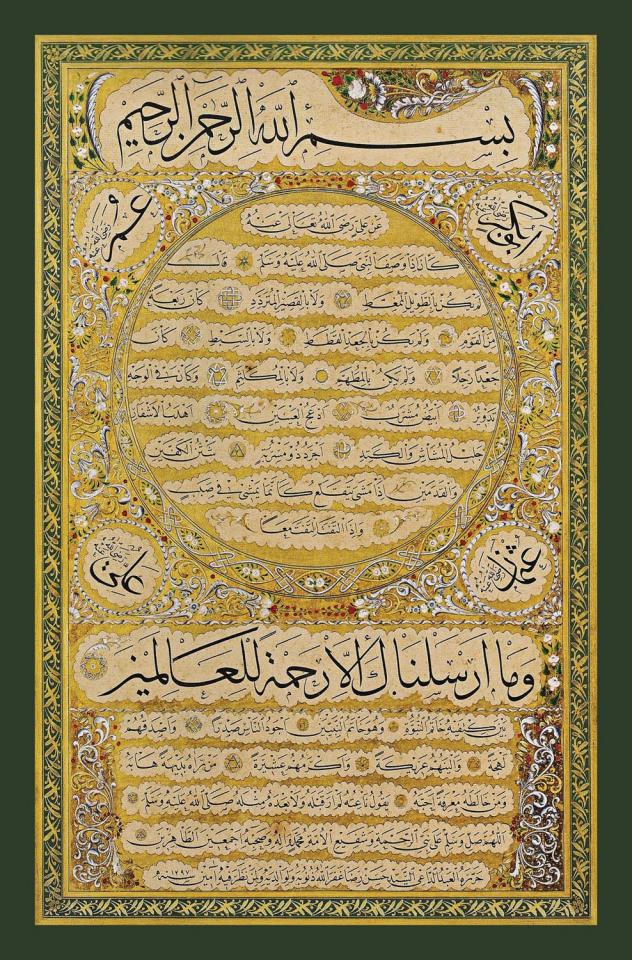 بسم الله الرحمن الرحيم
ابو بكر رضي الله عنه
عمر رضي الله عنه
عن علي رضي الله تعالى عنه
كان اذا وصف النبي صلى الله عليه وسلم قال
لم يكن بالطويل الممغط ولا بالقصير المتردد كان ربعة
من القوم ولم يكن بالجعد القطط ولا بالسبط كان
جعدا رجلا ولم يكن بالمطهم ولا بالمكلثم وكان في الوجه
تدوير ابيض مشرب ادعج العينين اهدب الاشفار
جليل المشاش والكتد اجرد ذو مسربة شثن الكفين
والقدمين اذا مشى يتقلع كانما يمشي في صبب
واذا التفت التفت معا
عثمان رضي الله عنه
علي رضي الله عنه
وما ارسلناك الا رحمة للعالمين
بين كتفيه خاتم النبوة وهو خاتم النبيين اجود الناس صدرا واصدقهم
لهجة والينهم عريكة واكرمهم عشيرة من رآه بديهة هابه
ومن خالطه معرفة احبه يقول ناعته لم ار قبله ولا بعده مثله صلى الله عليه وسلم
اللهم صل وسلم على نبي الرحمة وشفيع الامة محمد وآله وصحبه اجمعين الطاهرين
حرره العبد الداعي السيد حسن رضا غفر الله ذنوبه ولوالديه ولمن نظر فيه آمين ١٢٩٧